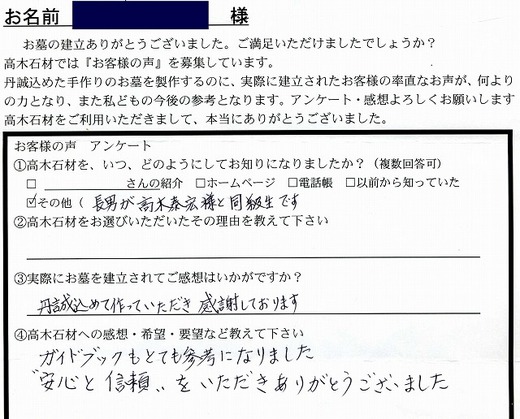 お名前 様
お墓の建立ありがとうございました。ご満足いただけましたでしょうか？
高木石材では『お客様の声』を募集しています。
丹誠込めた手作りのお墓を製作するのに、実際に建立されたお客様の率直なお声が、何より
の力となり、また私どもの今後の参考となります。アンケート・感想よろしくお願いします
高木石材をご利用いただきまして、本当にありがとうございました。
お客様の声 アンケート
①高木石材を、いつ、どのようにしてお知りになりましたか？（複数回答可）
□ さんの紹介 □ホームページ □電話帳 □以前から知っていた
☑その他（ 長男が高木泰宏様と同級生です
②高木石材をお選びいただいたその理由を教えて下さい
③実際にお墓を建立されてご感想はいかがですか？
丹誠込めて作っていただき 感謝しております
④高木石材への感想・希望・要望など教えて下さい
ガイドブックもとても参考になりました
“安心と信頼〟をいただきありがとうございました